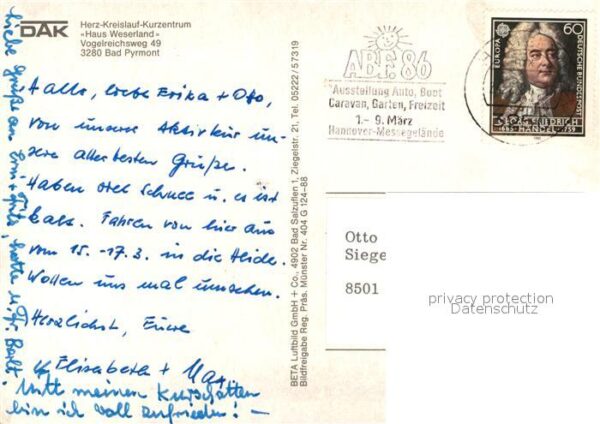 DAK
Herz-Kreislauf-Kurzentrum
»Haus Weserland«
Vogelreichsweg 49
3280 Bad Pyrmont
Hallo, liebe Erika + Otto,
von unserer Aktivkur un-
sere allerbesten Grüße.
Haben viel Schnee u. es ist
kalt. Fahren von hier aus
vom 15.-17.3. in die Heide.
Wollen uns mal umsehen.
Herzlichst, Eure
Elisabeth + Max
Mit meinen Kurschatten
bin ich voll zufrieden! –
Liebe Grüße an
BETA Luftbild GmbH + Co., 4902 Bad Salzuflen 1, Ziegelstr. 21, Tel. 05222/57319
Bildfreigabe Reg. Präs. Münster Nr. 404 G 124-88
ABF 86
Ausstellung Auto, Boot
Caravan, Garten, Freizeit
1.- 9. März
Hannover-Messegelände
EUROPA
60
DEUTSCHE BUNDESPOST
GEORG FRIEDRICH
HÄNDEL
Otto
Siege
8501
privacy protection
Datenschutz